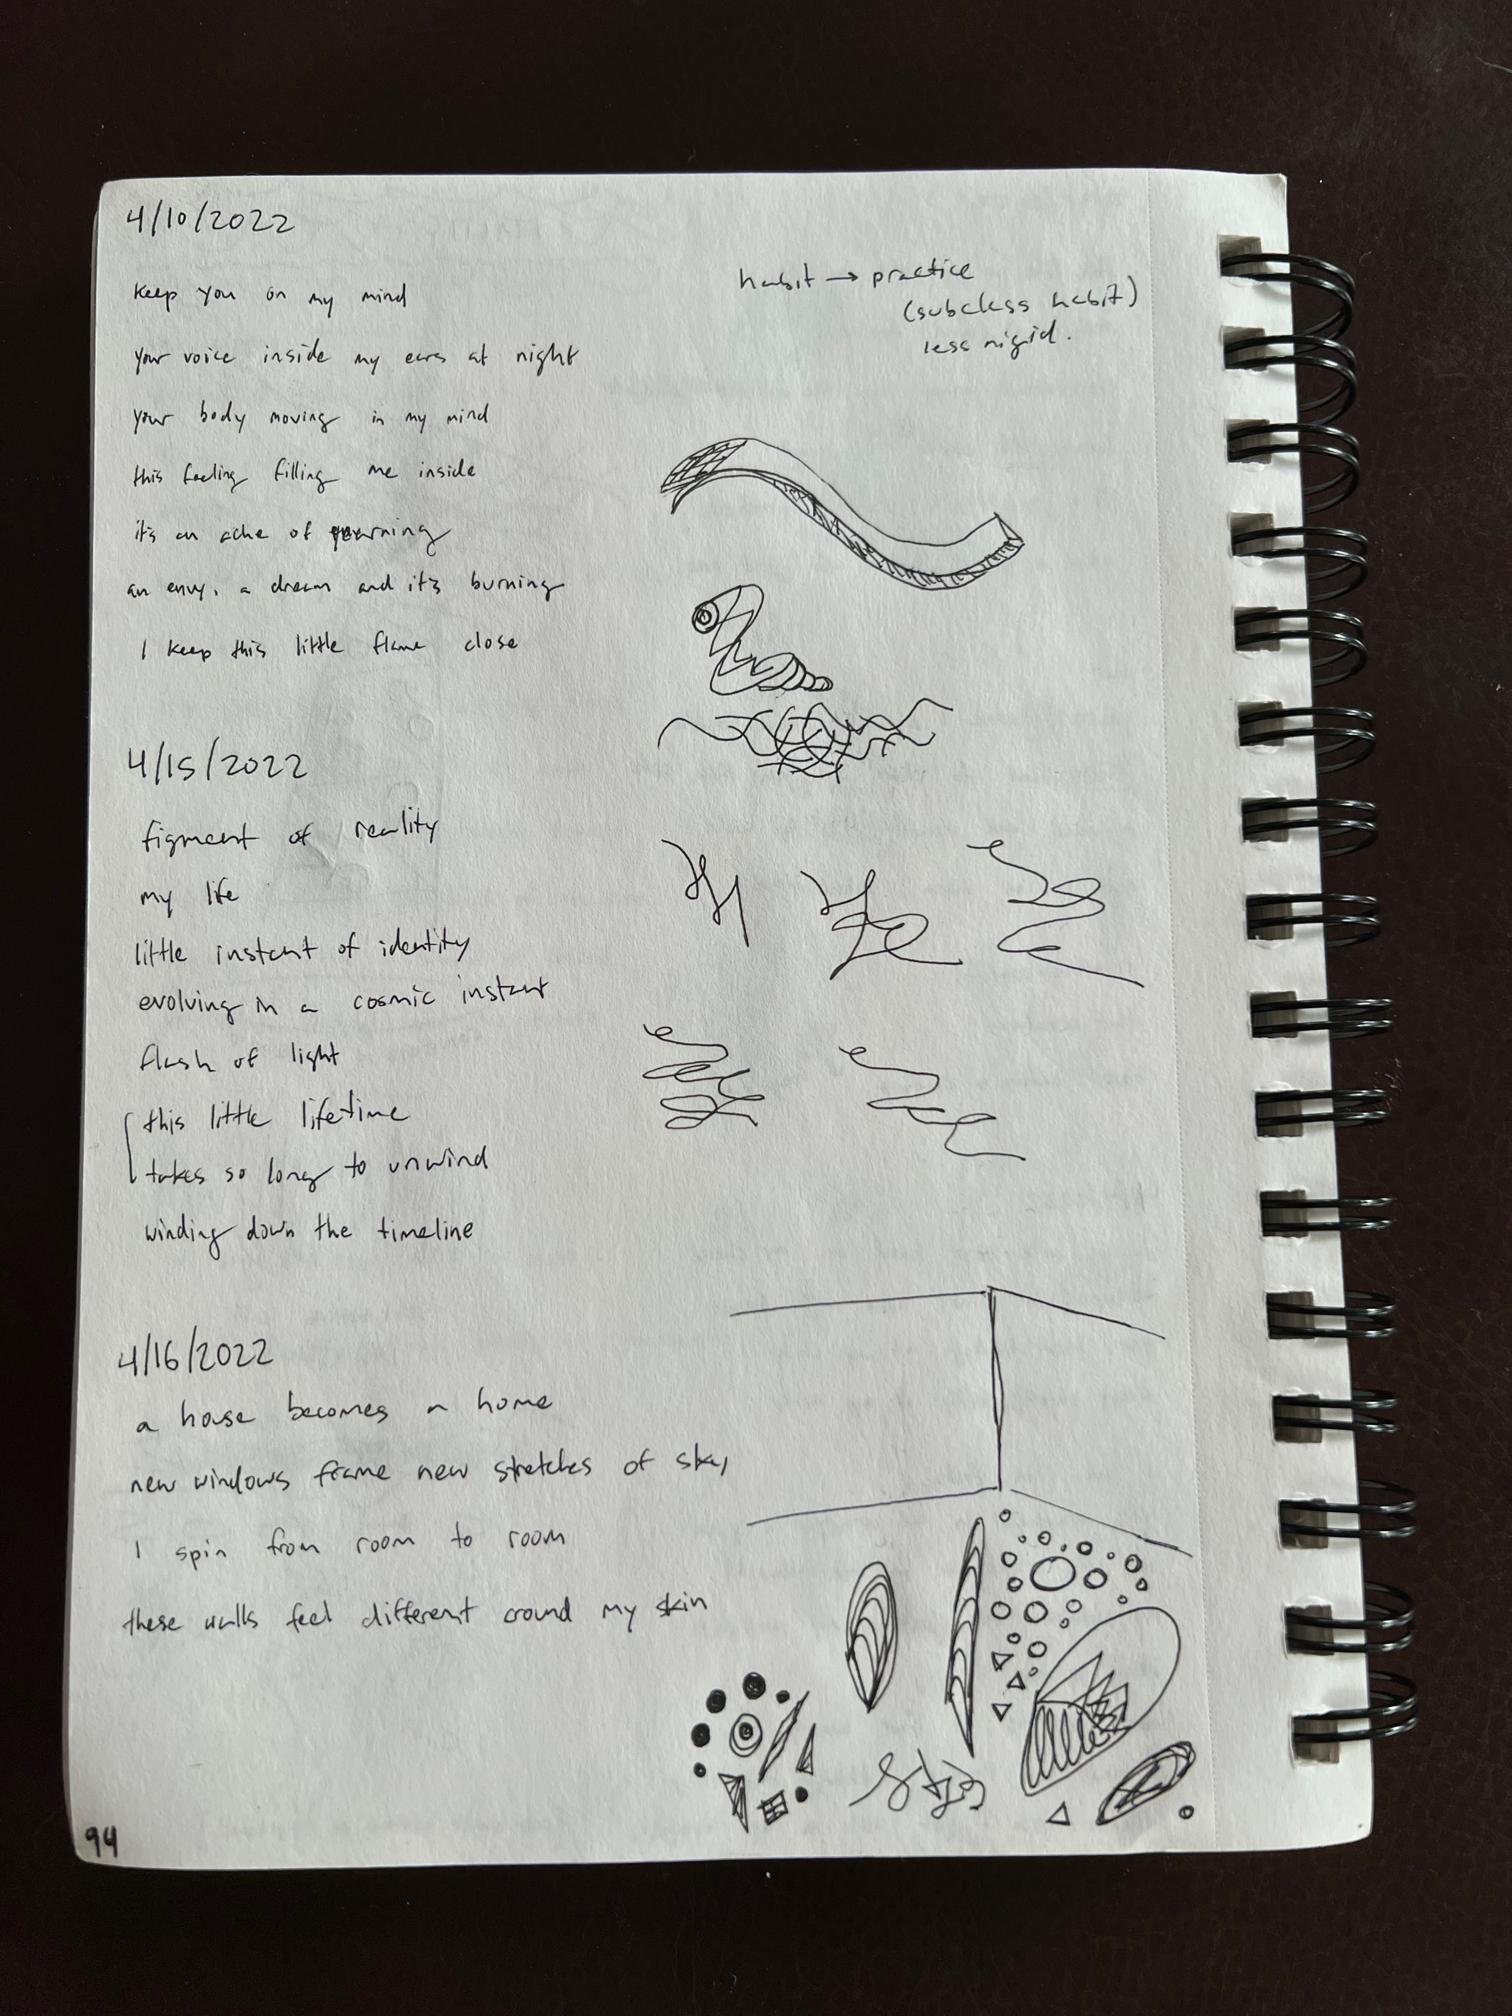 4/10/2022
keep you on my mind
your voice inside my ears at night
your body moving in my mind
this feeling filling me inside
it's an ache of yearning
an envy, a dream and it's burning
I keep this little flame close
habit → practice
(subclass habit)
less rigid.
4/15/2022
figment of reality
my life
little instant of identity
evolving in a cosmic instant
flash of light
this little lifetime
takes so long to unwind
winding down the timeline
4/16/2022
a house becomes a home
new windows frame new stretches of sky
I spin from room to room
these walls feel different around my skin
94